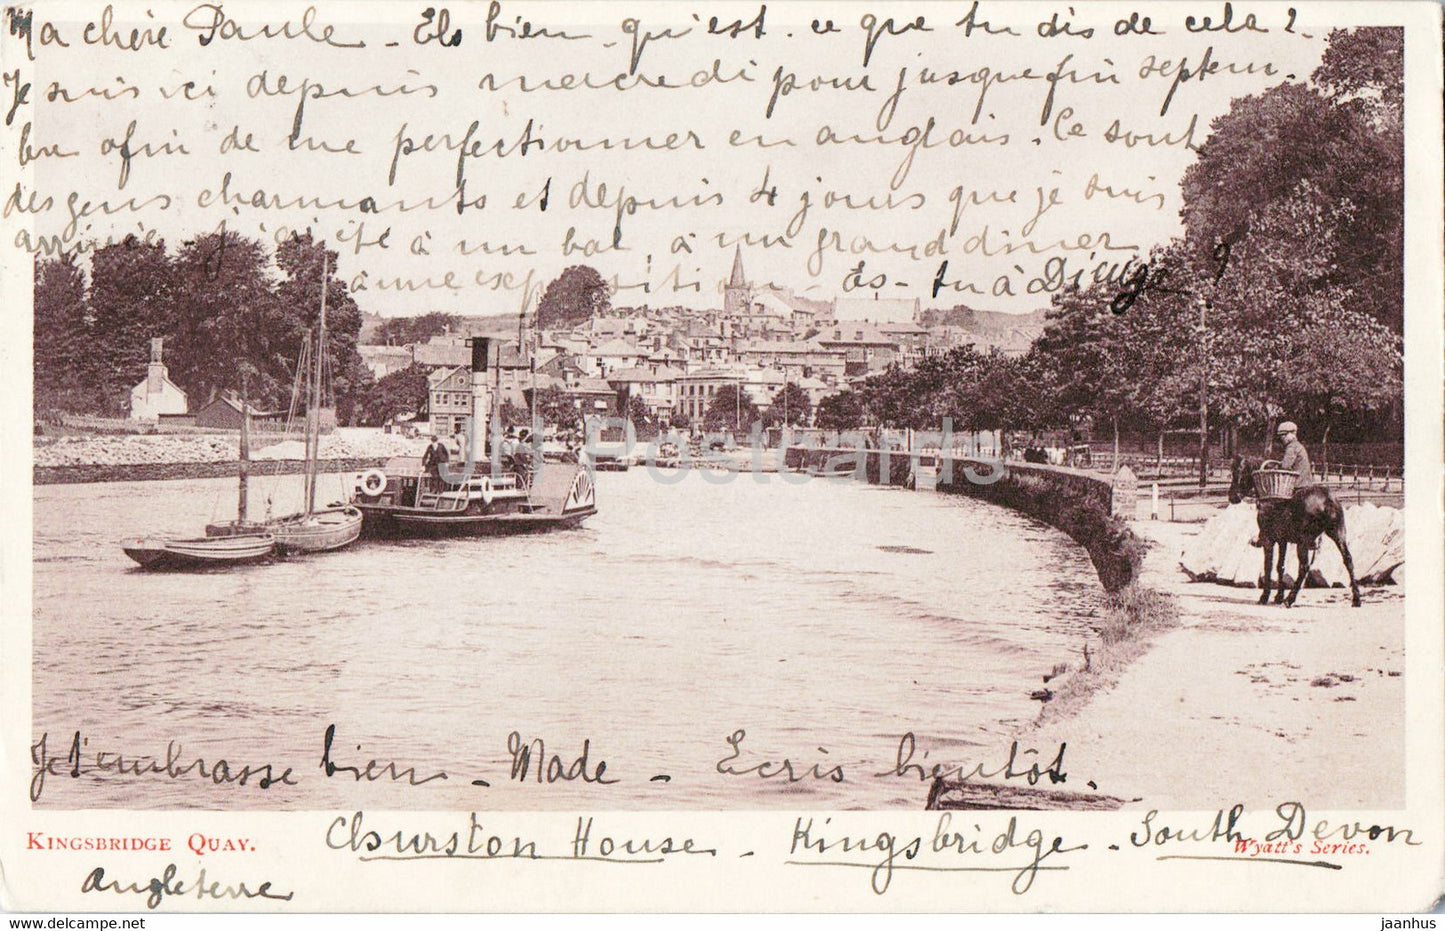 Ma chère Paule - Eh bien - qu'est . ce que tu dis de cela ?
Je suis ici depuis mercredi pour jusque fin septem-
bre afin de me perfectionner en anglais. Ce sont
des gens charmants et depuis 4 jours que je suis
arrivée j'ai été à un bal, à un grand dîner
à une exposition - Es-tu à Dieuze ?
JH Postcards
Je t'embrasse bien - Made - Ecris bientôt.
Kingsbridge Quay.
Wyatt's Series.
Churston House - Kingsbridge - South Devon
Angleterre
www.delcampe.net
jaanhus